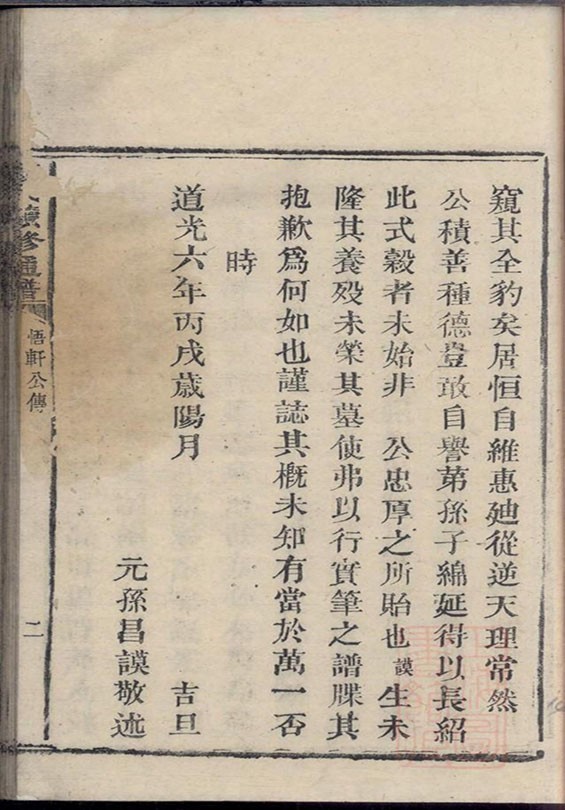 窺其全豹矣居恒自維惠廸從逆天理常然
公積善種德豈敢自譽第孫子綿延得以長紹
此式穀者未始非 公忠厚之所貽也謨生未
隆其養歿未榮其墓使弗以行實筆之譜牒其
抱歉為何如也謹誌其概未知有當於萬一否
時
道光六年丙戌歲陽月 吉旦
元孫昌謨敬述
修通譜
悟軒公傳
二